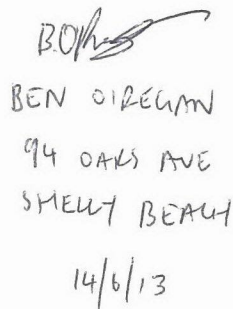 BEN O'REGAN
94 OAKS AVE
SHELLY BEACH
14/6/13